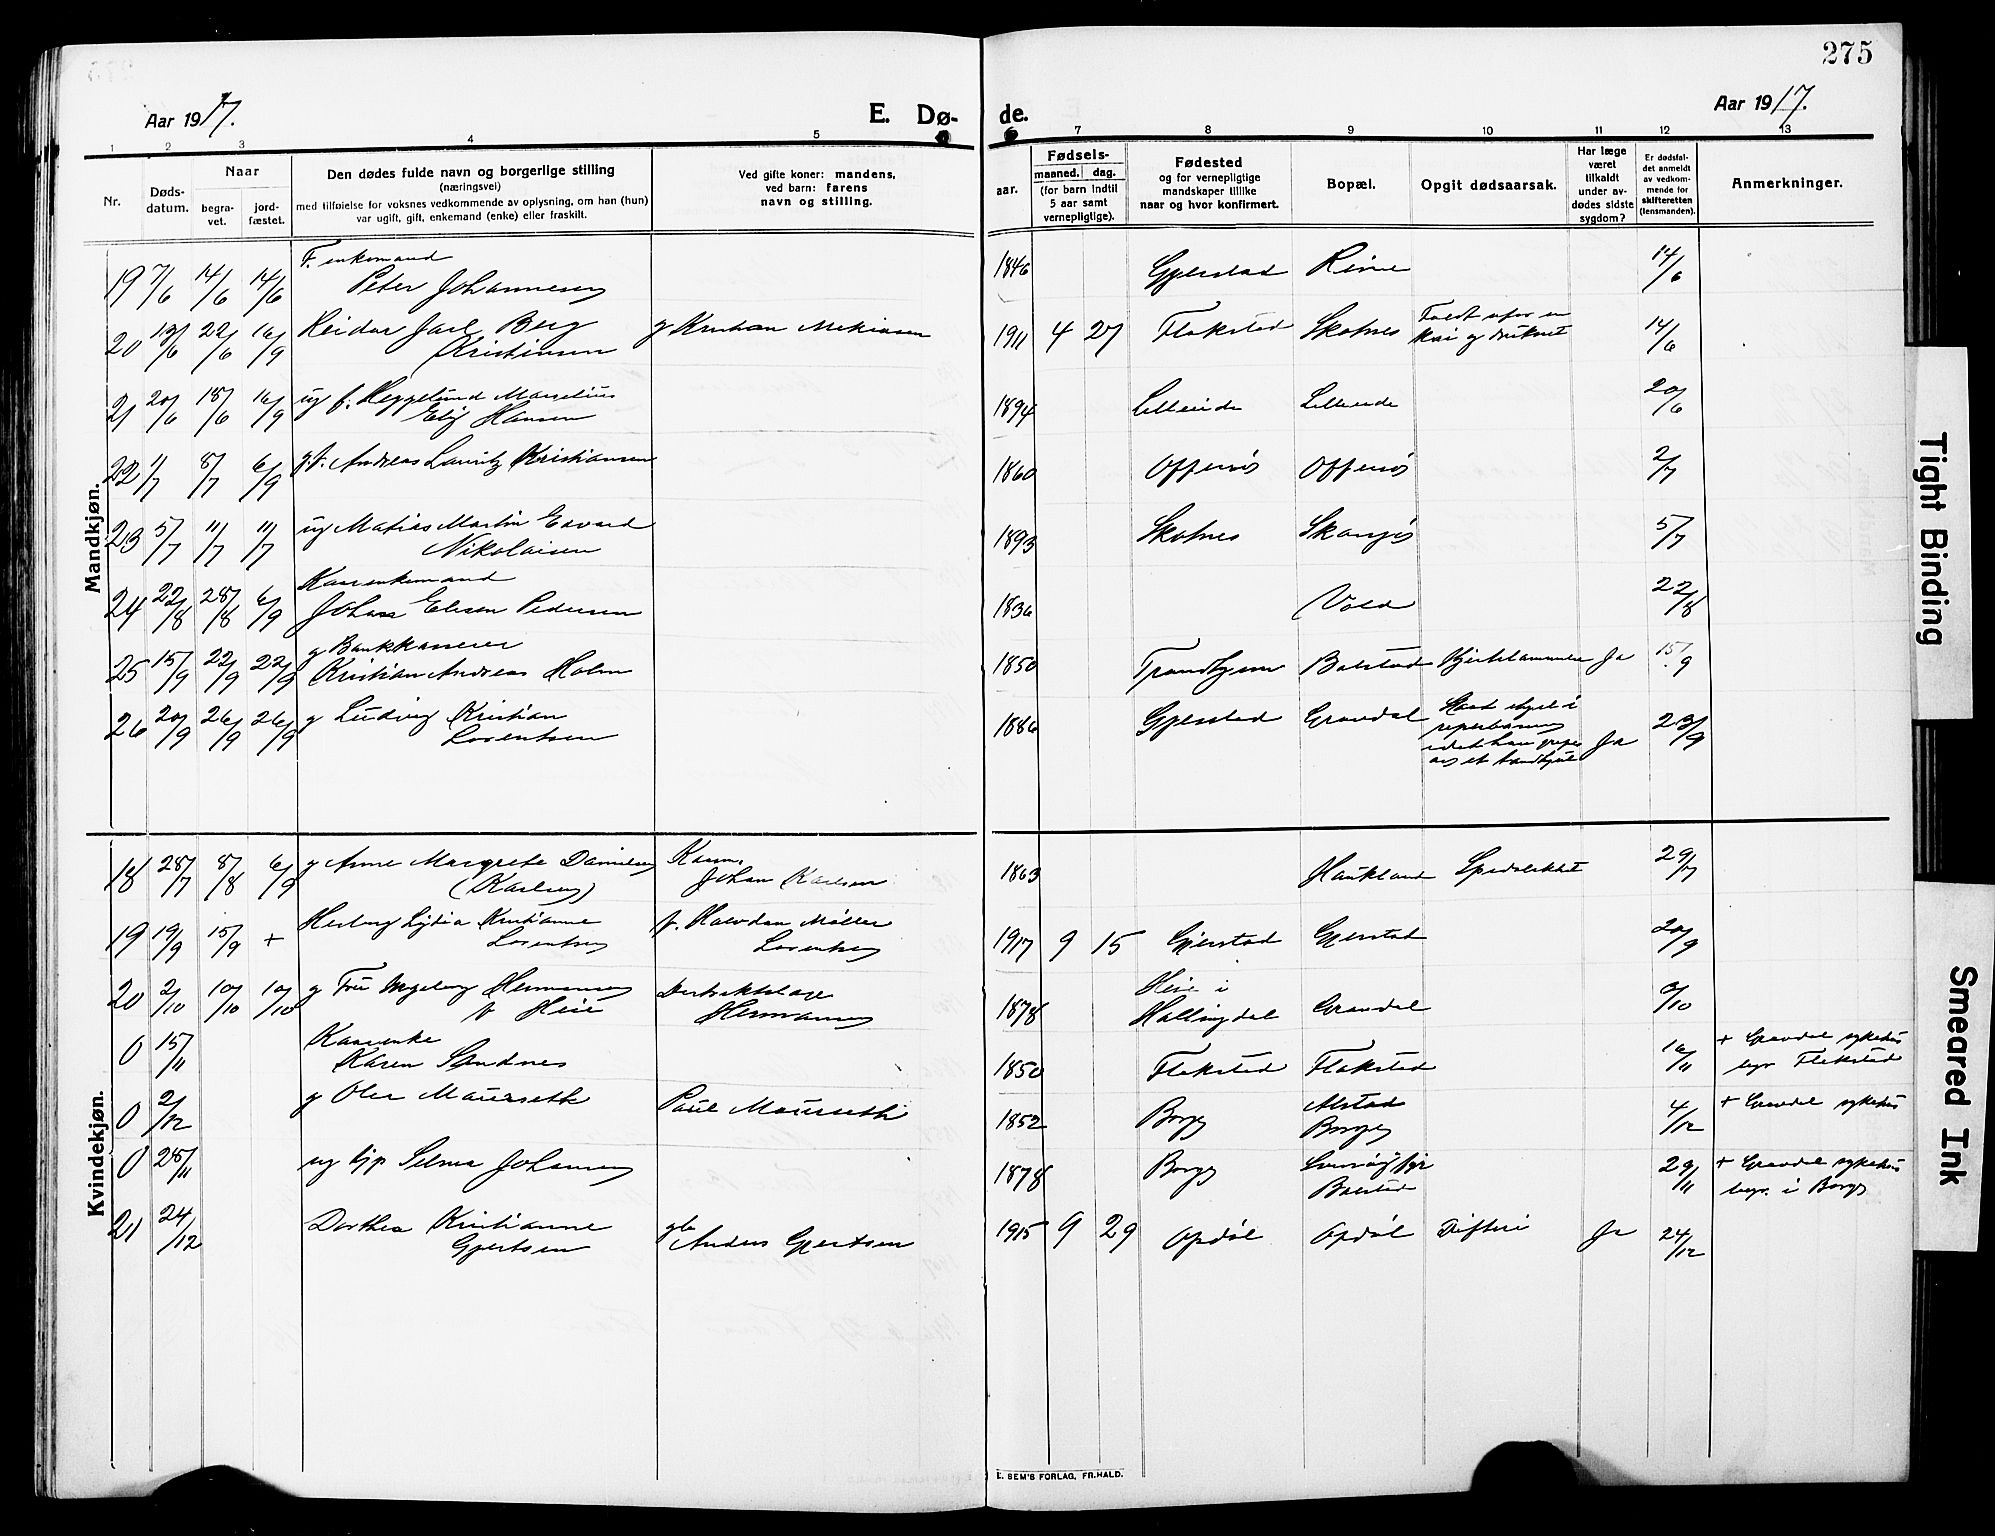 275
Aar 1917.
E. Dø-
de.
Aar 1917.
1 2 3 4 5 7 8 9 10 11 12 13
Nr.
Døds-
datum.
Naar
begra-
vet.
jord-
fæstet.
Den dødes fulde navn og borgerlige stilling
(næringsvei)
med tilføielse for voksnes vedkommende av oplysning, om han (hun)
var ugift, gift, enkemand (enke) eller fraskilt.
Ved gifte koner: mandens,
ved barn: farens
navn og stilling.
aar.
Fødsels-
maaned. dag.
(for barn indtil
5 aar samt
vernepligtige).
Fødested
og for vernepligtige
mandskaper tillike
naar og hvor konfirmert.
Bopæl.
Opgit dødsaarsak.
Har læge
været
tilkaldt
under av-
dødes sidste
sygdom?
Er dødsfal-
det anmeldt
av vedkom-
mende for
skifteretten
(lensmanden).
Anmerkninger.
Mandkjøn.
19 7/6 14/6 14/6 F. enkemand
Peter Johannesen 1846 Gjerstad Reine 14/6
20 13/6 22/6 16/9 Reidar Jarl Berg
Kristiansen g Kristian Mekiasen 1911 4 27 Flakstad Skotnes Faldt utfor en
kai og druknet 14/6
21 20/6 18/6 16/9 ug f. Heggelund Marselius
Elif Hansen 1894 Lilleeide Lilleeide 20/6
22 1/7 8/7 6/9 g. F. Andreas Lauritz Kristiansen 1860 Offersø Offersø 2/7
23 5/7 11/7 11/7 ug Matias Martin Edvard
Nikolaisen 1893 Skotnes 5/7
24 22/8 28/8 6/9 Kaarenkemand
Johan Elisen Pedersen 1836 Vold 22/8
25 15/9 22/9 22/9 g Bankkasserer
Kristian Andreas Holm 1850 Trondhjem Balstad Hjertelammelse Ja 15/9
26 20/9 26/9 26/9 g Ludvig Kristian
Lorentsen 1886 Gjerstad Gravdal Ja 23/9
Kvindekjøn.
18 28/7 8/8 6/9 g Anne Margrete Danielsen
(Karlsen) Kaarm.
Johan Karlsen 1863 Haukland Spedalskhet 29/7
19 19/9 15/9 + Herborg Lydia Kristianne
Lorentsen f. Halvdan Møller
Lorentsen 1917 9 15 Gjerstad Gjerstad 20/9
20 2/10 10/10 10/10 g Fru Ingeborg Hermansen
f Heie Distriktslæge
Hermansen 1878 Heie i
Hallingdal Gravdal 3/10
0 15/11 Kaarenke
Karen Sandnes 1850 Flakstad Flakstad 16/11 + Gravdal sykehus
begr. Flakstad
0 2/12 g Olea Maurseth Paul Maurseth 1852 Borge Alstad
Borge 4/12 + Gravdal sykehus
0 28/11 ug tjp Selma Johansen 1878 Borge
Balstad 29/11 + Gravdal sykehus
begr. i Borge
21 24/12 Dorthea Kristianne
Gjertsen gb
Anders Gjertsen 1915 9 29 Opdøl Opdøl Difteri Ja 24/12
E. SEM'S FORLAG, FR.HALD.
Tight Binding
Smeared Ink